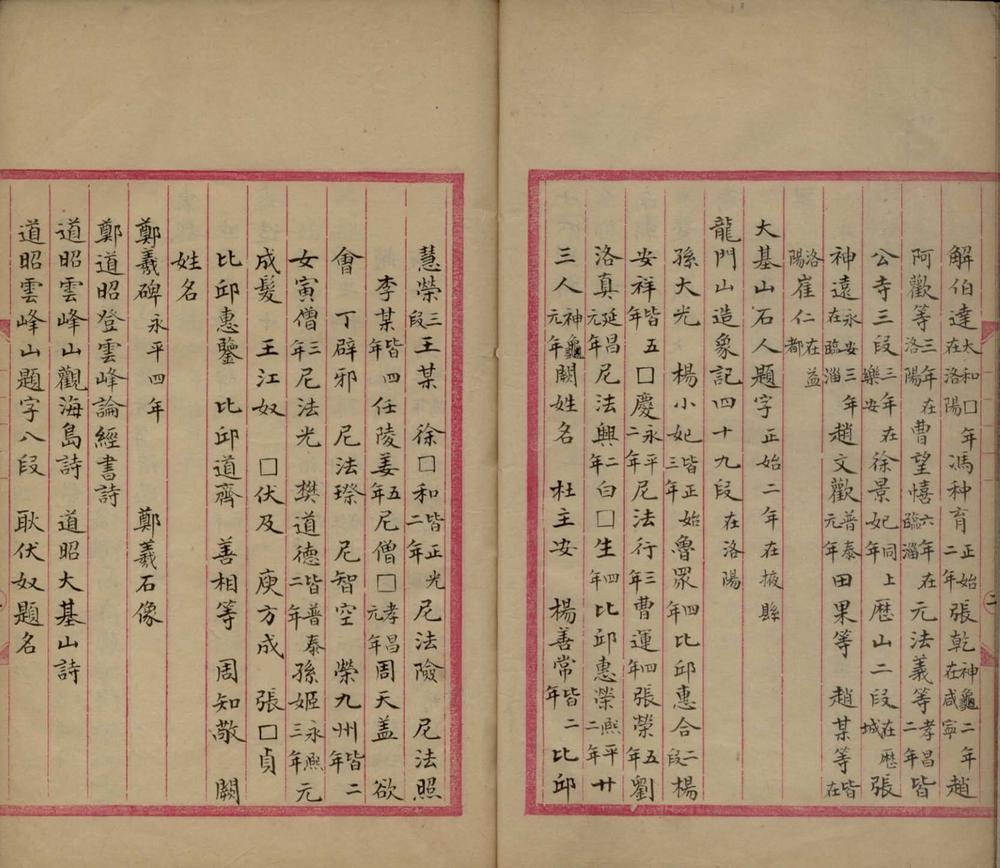 解伯達太和□年在洛陽馮种育正始二年張乾神龜二年在咸寧趙
阿歡等三年在洛陽曹望憘六年在臨淄元法義等孝昌二年皆
公寺三段三年在樂安徐景妃同上年歷山二段在歷城張
神遠永安三年在臨淄趙文歡普泰元年田果等　趙某等皆在
洛陽崔仁在益都
大基山石人題字正始二年在掖縣
龍門山造象記四十九段在洛陽
孫大光　楊小妃皆正始三年魯眾四年比邱惠合二段楊
安祥皆五年□慶永平二年尼法行三年曹運四年張榮五年劉
洛真延昌元年尼法興二年白□生四年比邱惠榮熙平二年廿
三人神龜元年闕姓名　杜主安　楊善常皆二年比邱
慧榮三段王某　徐□和皆正光二年尼法險　尼法照
李某皆四年任陵姜五年尼僧□孝昌元年周天盖　欲
會　丁辟邪　尼法璨　尼智空　榮九州皆二年
女寅僧三年尼法光　樊道德皆普泰二年孫姬永熙三年元
成髮　王江奴　□伏及　庚方成　張□貞
比邱惠鑒　比邱道齊　善相等　周知敵　闕
姓名
鄭羲碑永平四年　鄭羲石像
鄭道昭登雲峰論經書詩
道昭雲峰山觀海島詩　道昭大基山詩
道昭雲峰山題字八段　耿伏奴題名
二